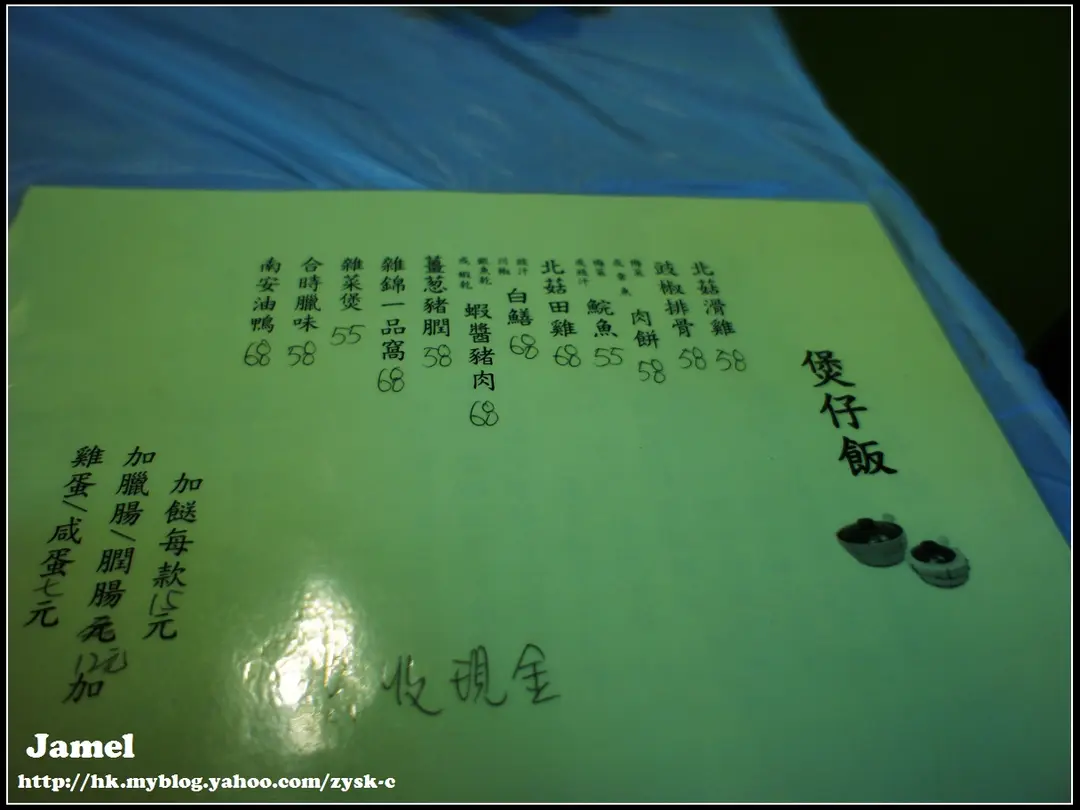 煲仔飯
北菇滑雞 58
豉椒排骨 58
梅菜 或 魚 肉餅 58
梅菜 或豉汁 鯇魚 55
北菇田雞 68
豉汁 川椒 白鱔 68
鱿魚乾 或 蝦乾 蝦醬豬肉 68
薑葱豬膶 58
雜錦一品窩 68
雜菜煲 55
合時臘味 58
南安油鴨 68
加餸每款15元
加臘腸/膶腸元 12元
加
雞蛋/咸蛋七元
收現金
Jamel
http://hk.myblog.yahoo.com/zysk-c